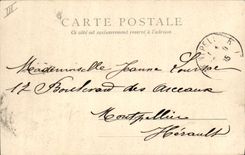 III
CARTE POSTALE
Ce côté est exclusivement réservé à l'adresse
Mademoiselle Jeanne
12 Boulevard des Arceaux
Montpellier
Hérault